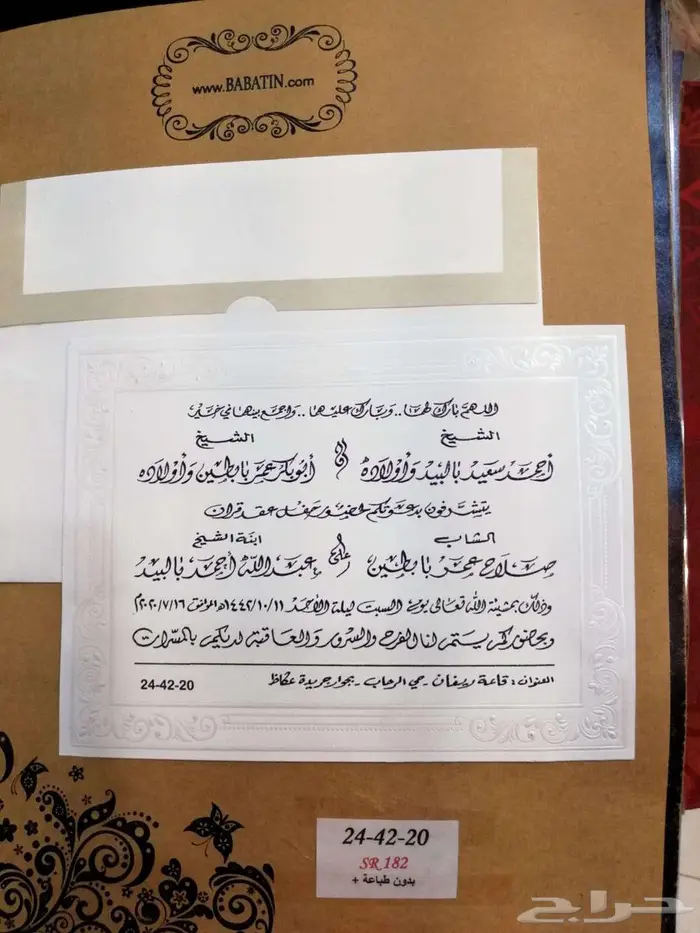 www.BABATIN.com
اللهم بارك لهما .. وبارك عليهما .. واجمع بينهما في خير
الشيخ الشيخ
أحمد سعيد بالبيد وأولاده و أبوبكر عمر بابطين وأولاده
يتشرفون بدعوتكم لحضور حفل عقد قران
الشاب ابنة الشيخ
صلاح عمر بابطين على عبدالله أحمد بالبيد
وذلك بمشيئة الله تعالى يوم السبت ليلة الأحد ١٤٤٢/١٠/١١هـ الموافق ٢٠٢٠/٧/١٦م
وبحضوركم يتم لنا الفرح والسرور والعاقبة لديكم بالمسرات
العنوان : قاعة - حي الرحاب - بجوار جريدة عكاظ
24-42-20
24-42-20
SR 182
بدون طباعة +
حراج